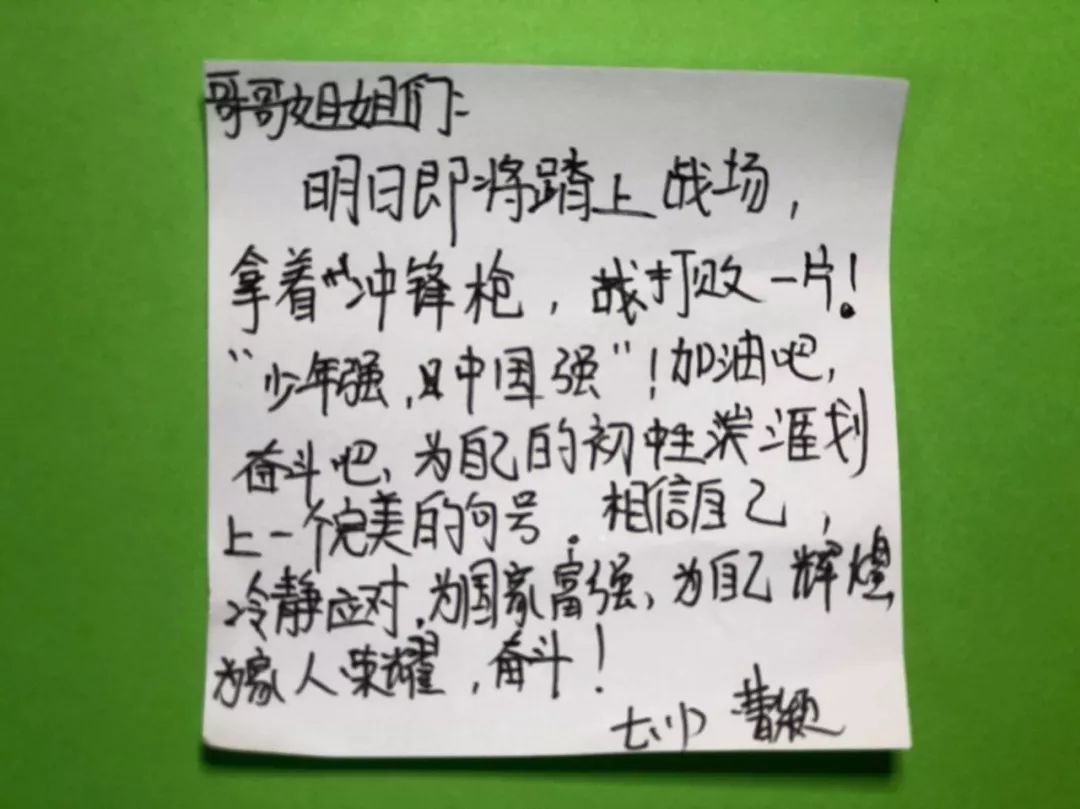 哥哥姐姐们:
明日即将踏上战场,
拿着冲锋枪,战打败一片!
“少年强,中国强”!加油吧,
奋斗吧、为自己的初中生涯划
上一个完美的句号.相信自己,
冷静应对.为国家富强、为自己辉煌
为家人荣耀,奋斗!
七